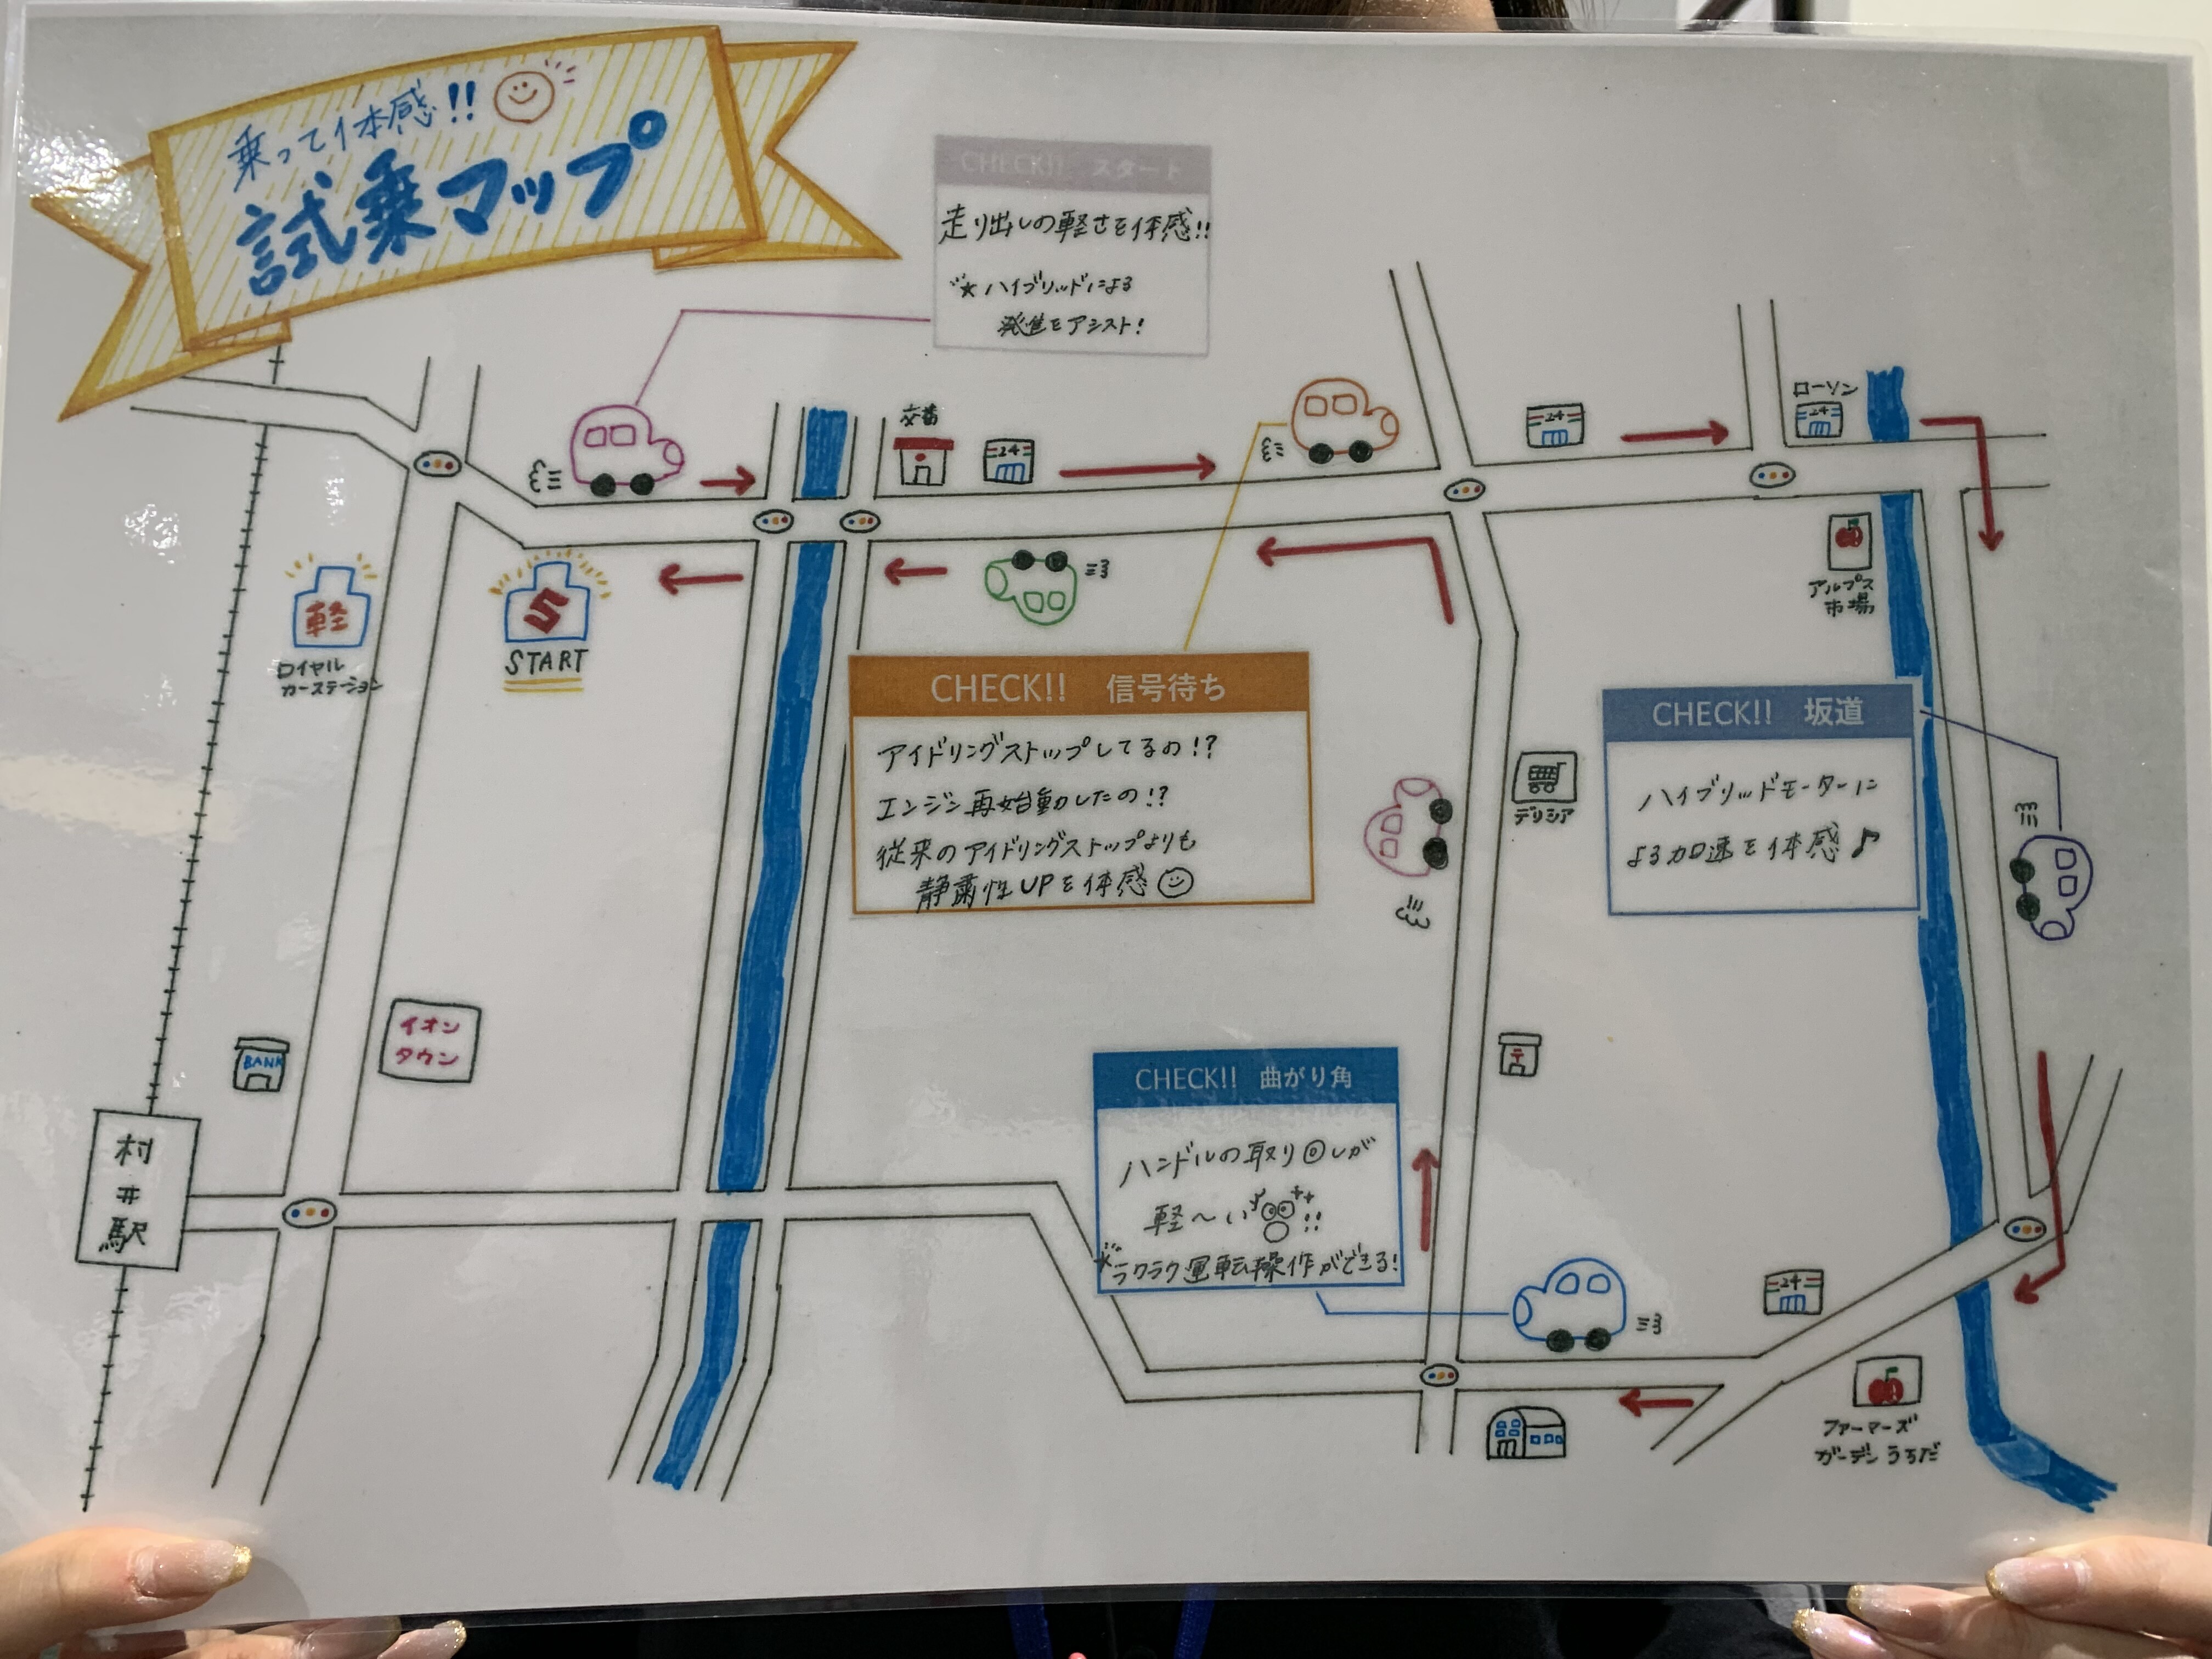 乗って体感!!
試乗マップ
CHECK!! スタート
走り出しの軽さを体感!!
★ハイブリッドによる
発進をアシスト!
交番
24
24
ローソン
24
軽
ロイヤル
カーステーション
START
アルプス
市場
CHECK!! 信号待ち
アイドリングストップしてるの!?
エンジン再始動したの!?
従来のアイドリングストップよりも
静粛性UPを体感
CHECK!! 坂道
ハイブリッドモーターに
よる加速を体感♪
デリシア
BANK
イオン
タウン
〒
村井駅
CHECK!! 曲がり角
ハンドルの取り回しが
軽〜い!!
★ラクラク運転操作ができる!
24
ファーマーズ
ガーデンうちだ